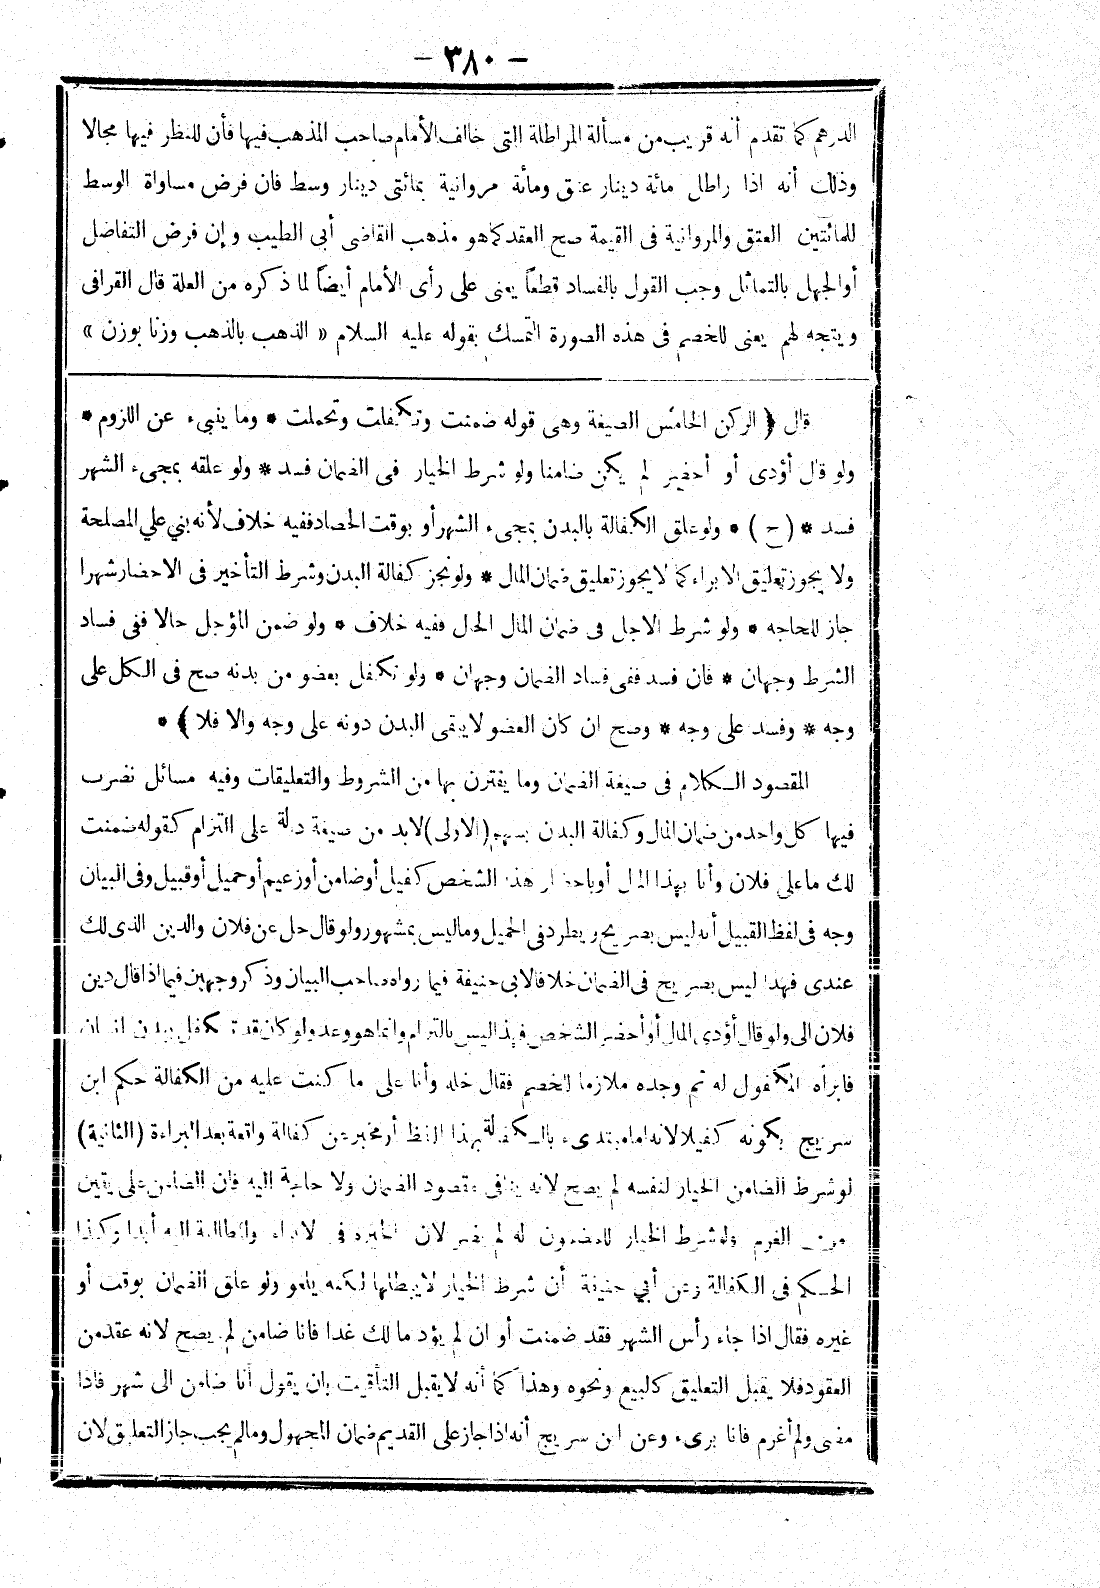 - ٣٨٠ -
الدرهم كما تقدم أنه قريب من مسألة المراطلة التى خالف الأمام صاحب المذهب فيها فأن للنظر فيها مجالا
وذلك أنه اذا راطل مائة دينار عتق ومائة مروانية بمائتى دينار وسط فان فرض مساواة الوسط
للمائتين العتق والمروانية فى القيمة صح العقد كما هو مذهب القاضى أبى الطيب وإن فرض التفاضل
أو الجهل بالتماثل وجب القول بالفساد قطعاً يعنى على رأى الأمام أيضاً لما ذكره من العلة قال القرافى
ويتجه لهم يعنى للخصم فى هذه الصورة التمسك بقوله عليه السلام « الذهب بالذهب وزنا بوزن »
قال ﴿ الركن الخامس الصيغة وهى قوله ضمنت وتكفلت وتحملت * وما ينبىء عن اللزوم *
ولو قال أؤدى أو أحضر لم يكن ضامنا ولو شرط الخيار فى الضمان فسد * ولو علقه بمجىء الشهر
فسد * (ح) * ولو علق الكفالة بالبدن بمجىء الشهر أو بوقت الحصاد ففيه خلاف لأنه بني علي المصلحة
ولا يجوز تعليق الابراء كما لا يجوز تعليق ضمان المال * ولو نجز كفالة البدن وشرط التأخير فى الاحضار شهرا
جاز للحاجه * ولو شرط الاجل فى ضمان المال الحال ففيه خلاف * ولو ضمن المؤجل حالا ففى فساد
الشرط وجهان * فان فسد ففى فساد الضمان وجهان * ولو تكفل بعضو من بدنه صح فى الكل على
وجه * وفسد على وجه * وصح ان كان العضو لا يبقى البدن دونه على وجه والا فلا ﴾ *
المقصود الكلام فى صيغة الضمان وما يقترن بها من الشروط والتعليقات وفيه مسائل نضرب
فيها كل واحد من ضمان المال وكفالة البدن بسهم (الاولى) لابد من صيغة دالة على التزام كقوله ضمنت
لك ما على فلان وأنا بهذا المال أو باحضار هذا الشخص كفيل أو ضامن أو زعيم أو حميل أو قبيل وفى البيان
وجه فى لفظ القبيل أنه ليس بصريح ويطرد فى الحميل وما ليس بمشهور ولو قال حل عن فلان والدين الذى لك
عندى فهذا ليس بصريح فى الضمان خلافا لابى حنيفة فيما رواه صاحب البيان وذكر وجهين فيما اذا قال دين
فلان الى ولو قال أؤدى المال أو أحضر الشخص فهذا ليس بالتزام وانما هو وعد ولو كان قد تكفل ببدن انسان
فابرأه المكفول له ثم وجده ملازما للخصم فقال خله وأنا على ما كنت عليه من الكفالة حكم ابن
سريج بكونه كفيلا لانه اما مبتدىء بالكفالة بهذا اللفظ أو مخبر عن كفالة واقعة بعد البراءة (الثانية)
لو شرط الضامن الخيار لنفسه لم يصح لانه ينافى مقصود الضمان ولا حاجة اليه فان الضامن على يقين
من الغرم ولو شرط الخيار للمضمون له لم يضر لان الخيرة فى الابراء والمطالبة اليه أبدا وكذا
الحكم فى الكفالة وعن أبي حنيفة أن شرط الخيار لا يبطلها لكنه يلغو ولو علق الضمان بوقت أو
غيره فقال اذا جاء رأس الشهر فقد ضمنت أو ان لم يؤد مالك غدا فانا ضامن لم يصح لانه عقد من
العقود فلا يقبل التعليق كالبيع ونحوه وهذا كما أنه لا يقبل التأقيت بان يقول أنا ضامن الى شهر فاذا
مضى ولم أغرم فانا برىء وعن ابن سريج أنه اذا جاز على القديم ضمان المجهول وما لم يجب جاز التعليق لان